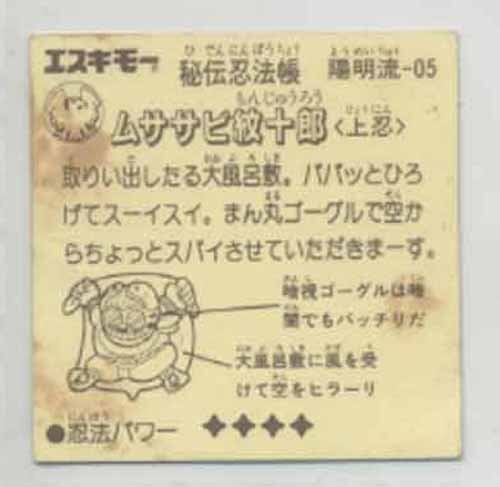 エスキモー 秘伝忍法帳 陽明流-05
ムササビ紋十郎〈上忍〉
取りい出したる大風呂敷。パパッとひろ
げてスーイスイ。まん丸ゴーグルで空か
らちょっとスパイさせていただきまーす。
暗視ゴーグルは暗
闇でもバッチリだ
大風呂敷に風を受
けて空をヒラーリ
●忍法パワー ✦✦✦✦